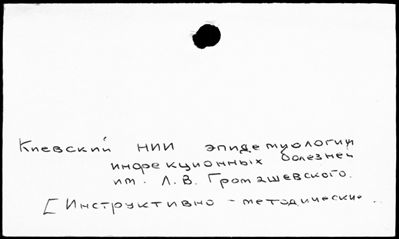 Киевский НИИ эпидемиологии
инфекционных болезней
им. Л.В. Громашевского.
[Инструктивно - методические